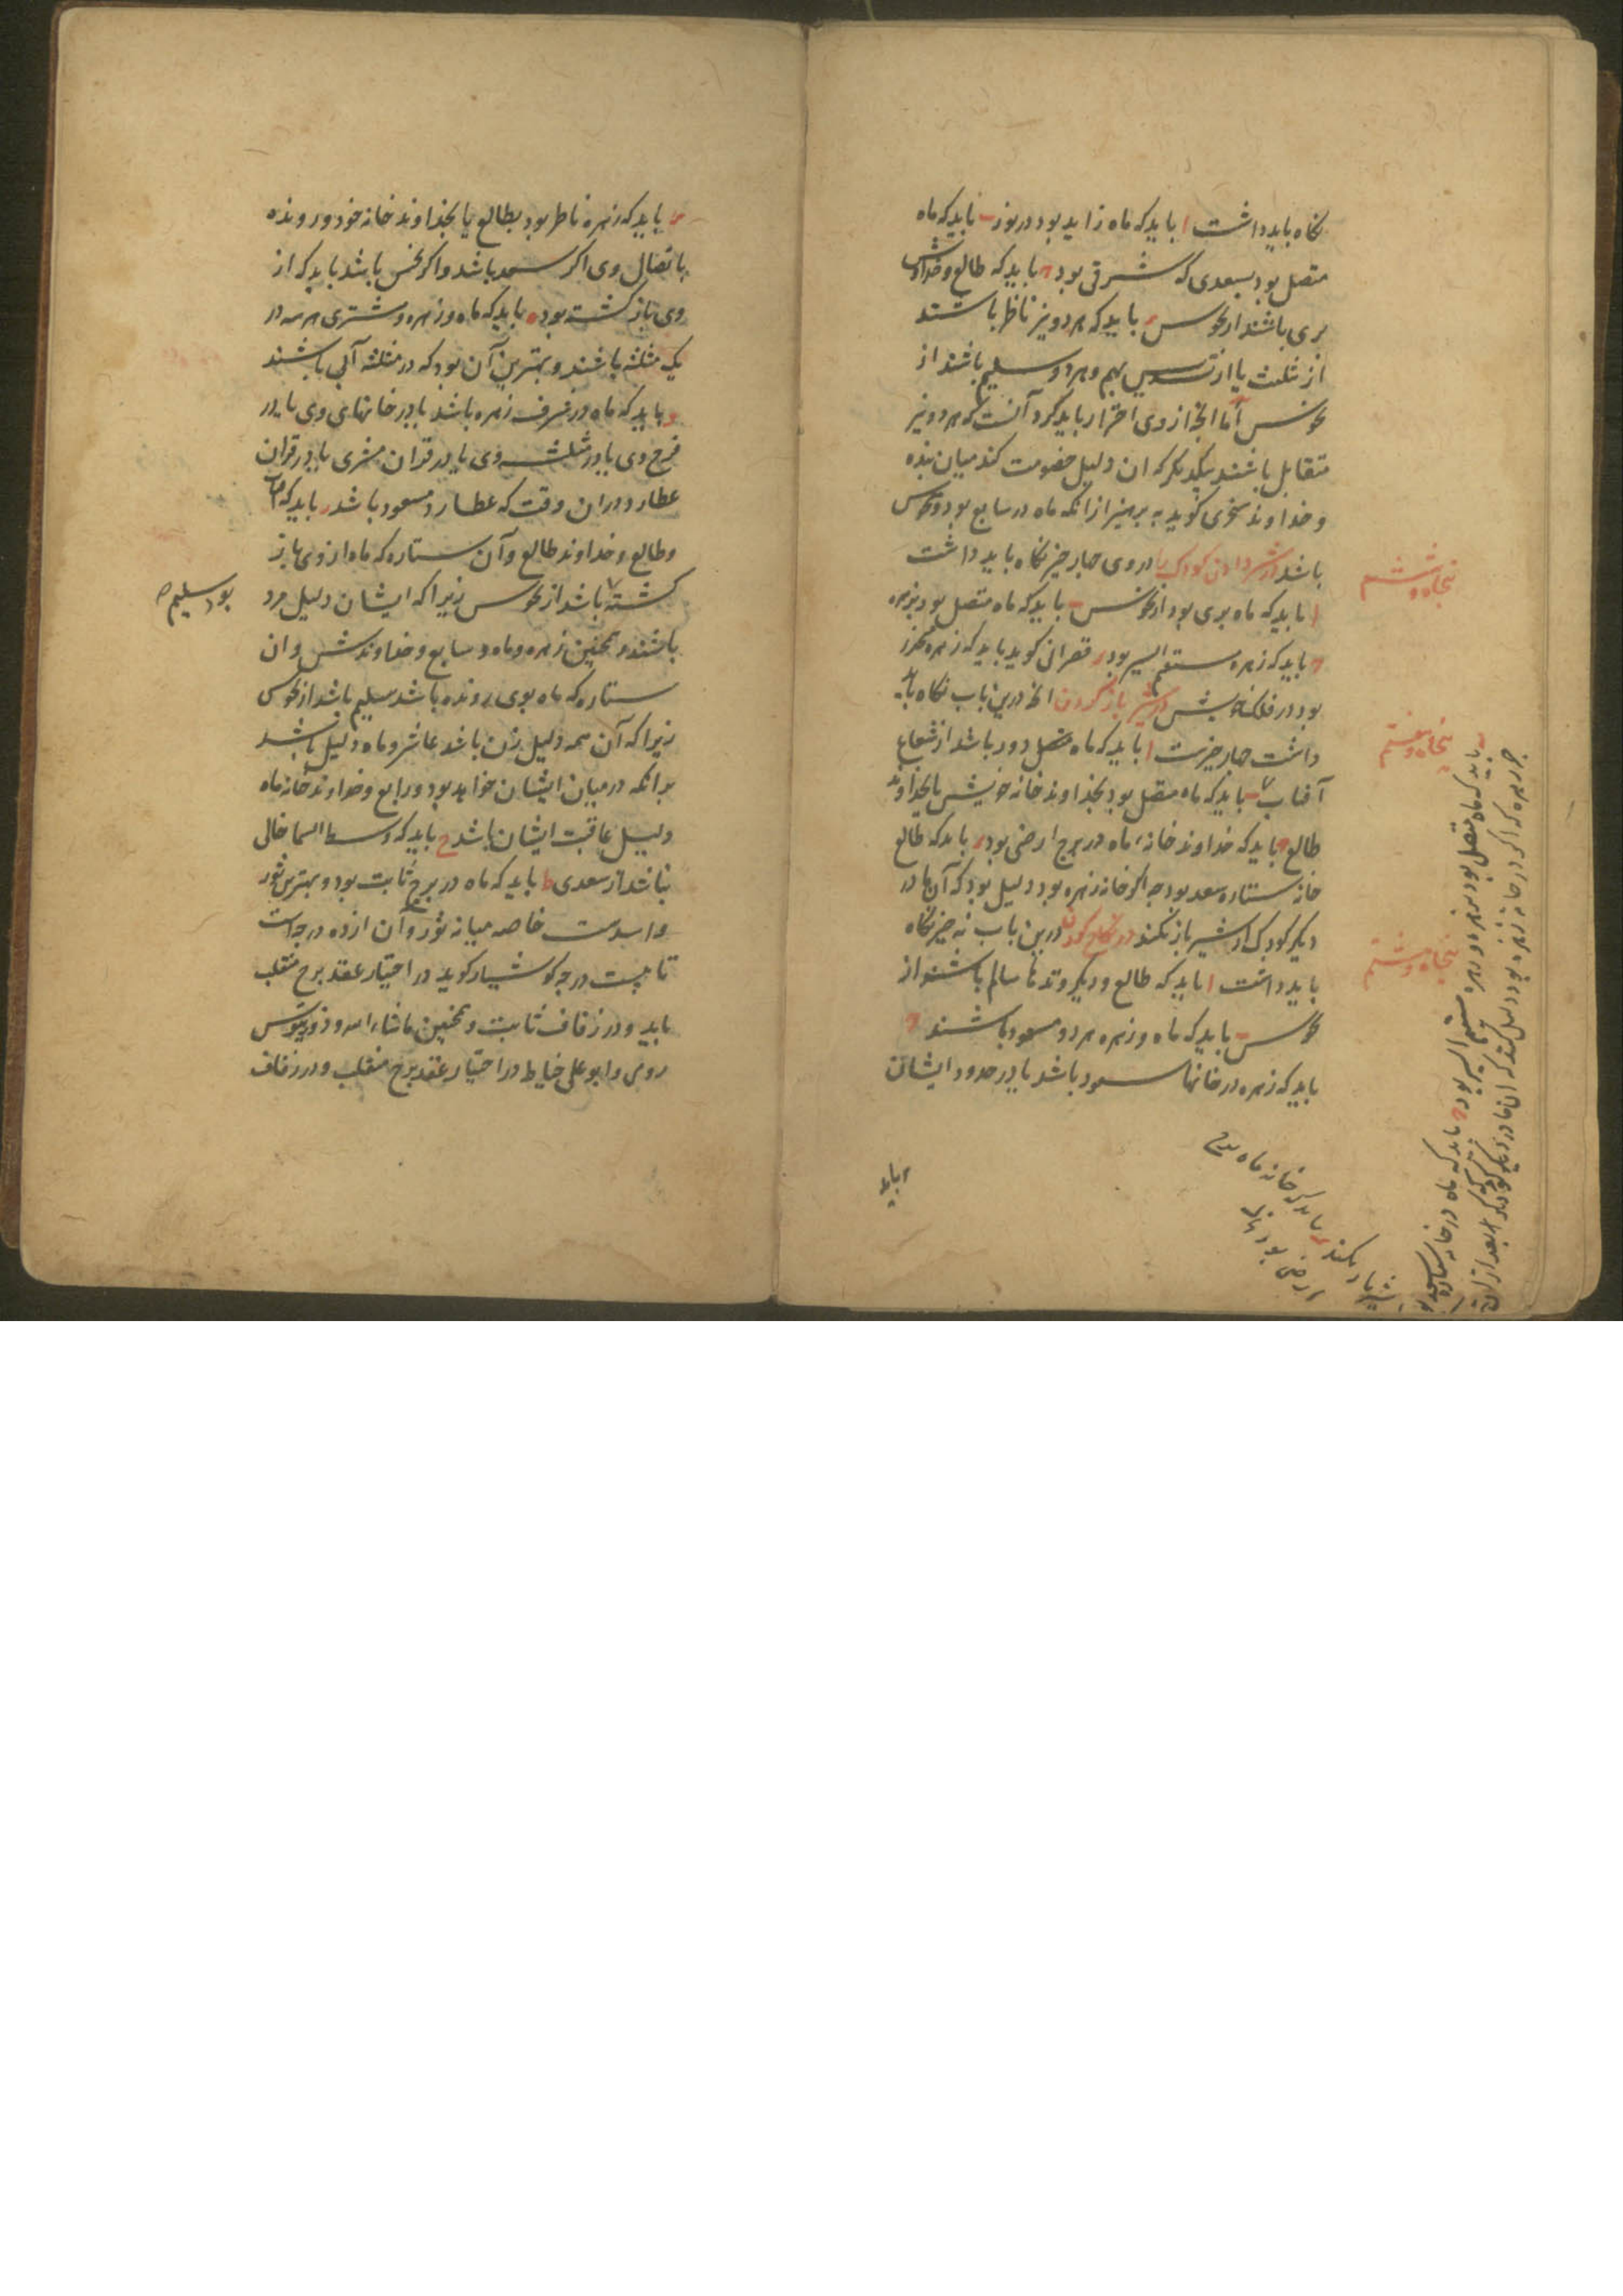 نکاه باید داشت ا باید که ماه زاید بود در نور ب باید که ماه
متصل بود بسعدی که شرقی بود ج باید که طالع و خداوندش
بری باشند از نحوس د باید که هر دو نیز ناظر باشند
از تثلیث یا از تسدیس بهم و هر دو سلیم باشند از
نحوس اما انچ از وی احتراز باید کرد آنست که هر دو نیز
متقابل باشند یکدیکر که ان دلیل خصومت کند میان بنده
و خداوند سخری کوید به پرهیز از انکه ماه در سابع بود و نحوس
باشد در شیر دادن کودک را در وی چهار چیز نکاه باید داشت
ا باید که ماه بری بود از نحوس ب باید که ماه متصل بود بزهره
ج باید که زهره مستقیم السیر بود د قصرانی کوید باید که زهره
بود در فلک خویش در شیر باز کردن انچ درین باب نکاه باید
داشت چهار چیزست ا باید که ماه دور باشد از شعاع
آفتاب ب باید که ماه متصل بود بخداوند خانه خویش یا بخداوند
طالع ج باید که خداوند خانه ماه در برج ارضی بود د باید که طالع
خانه ستاره سعد بود چه اکر خانه زهره بود دلیل بود که آن مادر
دیکر کودک را از شیر باز نکند در نکاح کردن درین باب نه چیز نکاه
باید داشت ا باید که طالع و دیکر وتدها سالم باشند از
نحوس ب باید که ماه و زهره هر دو مسعود باشند ج
باید که زهره در خانها سعود باشد یا در حدود ایشان
پنجاه و ششم
پنجاه و هفتم
پنجاه و هشتم
ب باید که ماه متصل بود بزهره و زهره مستقیم السیر بود ج باید که ماه در خانه ستاره سعد بود
چه زهره که اکر در خانه زهره بود دلیل کند که ان مادر دیکر کودک را بعد از ان
از شیر باز نکند د باید که خانه ماه برج
ارضی بود
د باید که زهره ناظر بود بطالع یا بخداوند خانه خود و رونده
باتصال وی اکر سعد باشد و اکر نحس باشد باید که از
وی باز کشته بود ه باید که ماه و زهره و مشتری هر سه در
یک مثلثه باشند و بهترین آن بود که در مثلثه آبی باشند
و باید که ماه در شرف زهره باشد یا در خانهای وی یا در
فرح وی یا در مثلثه وی یا در قران مشتری یا در قران
عطارد در ان وقت که عطارد مسعود باشد ز باید که آفتاب
و طالع و خداوند طالع و آن ستاره که ماه از وی باز
کشته باشد از نحوس زیرا که ایشان دلیل مرد
بود سلیم
باشند و همچنین زهره و ماه و سابع و خداوندش و ان
ستاره که ماه بوی رونده باشد سلیم باشد از نحوس
زیرا که آن همه دلیل زن باشد عاشر و ماه دلیل باشد
برانکه در میان ایشان خواهد بود و رابع و خداوند خانه ماه
دلیل عاقبت ایشان باشد ح باید که وسط السما خالی
نباشد از سعدی ط باید که ماه در برج ثابت بود و بهترین ثور
و اسدست خاصه میانه ثور و آن از ده درجه است
تا بیست درجه کوشیار کوید در اختیار عقد برج منقلب
باید و در زفاف ثابت و همچنین ماشاء الله و ذورثیوس
رومی و ابو علی خیاط در اختیار عقد برج منقلب و در زفاف